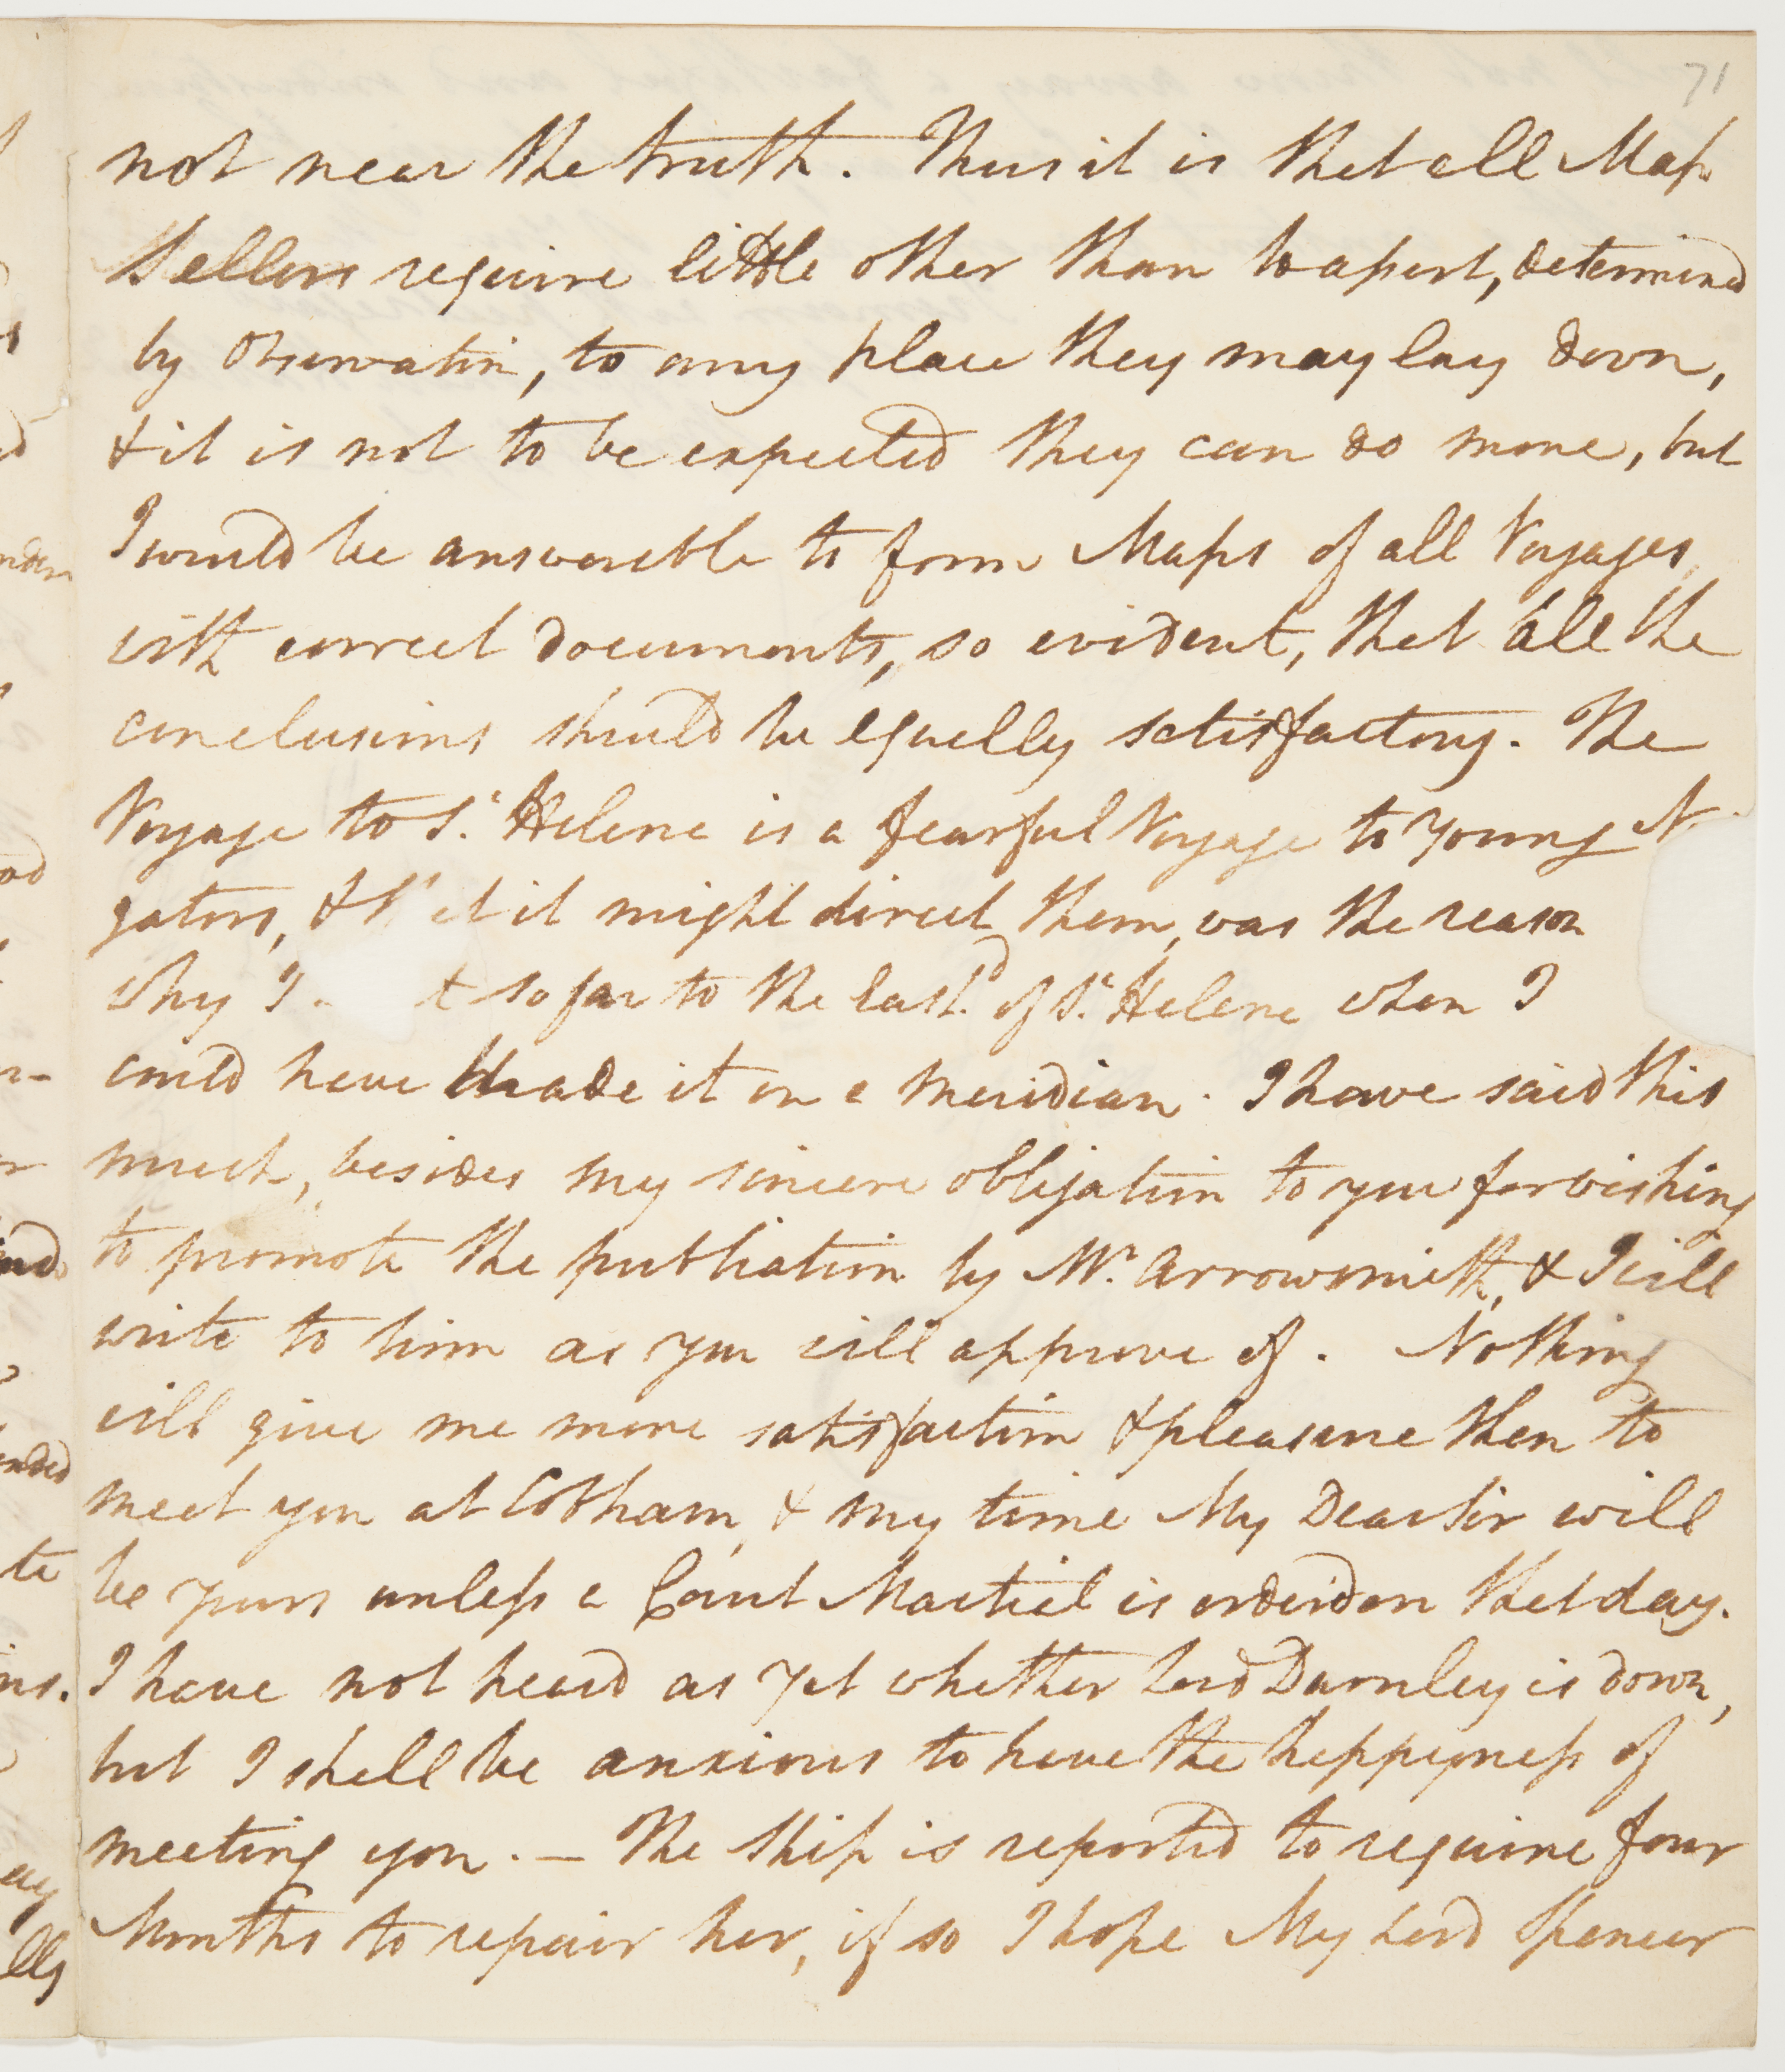 71
not near the truth. Thus it is that all Map
Sellers require little other than to assert, determined
by Observation, to any place they may lay down,
& it is not to be expected they can do more, but
I would be answerable to form Maps of all Voyages
with correct documents, so evident, that all the
conclusions should be equally satisfactory. The
Voyage to St. Helena is a fearful Voyage to Young N
gators, & th at it might direct them, was the reason
why I t so far to the Eastd. of St. Helena when I
could have made it on a meridian. I have said this
much, besides my sincere obligation to you for wishing
to promote the publication by Mr. Arrowsmith, & I will
write to him as you will approve of. Nothing
will give me more satisfaction & pleasure then to
meet you at Cobham, & my time My Dear Sir will
be yours unless a Court Martial is orderd on that day.
I have not heard as yet whether Lord Darnley is down,
but I shall be anxious to have the happyness of
meeting you. — The Ship is reported to require four
Months to repair her, if so I hope My Lord Spencer